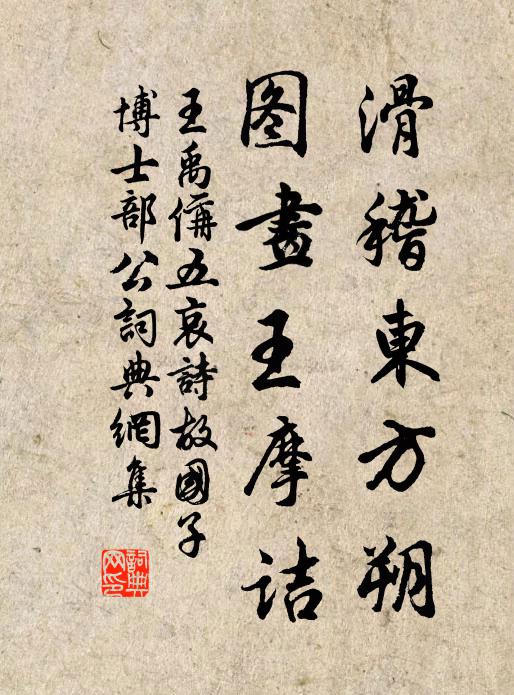 滑稽東方朔
图畫王摩詰
王禹偁五哀詩故國子
博士部公詞典網集
詞典
网印